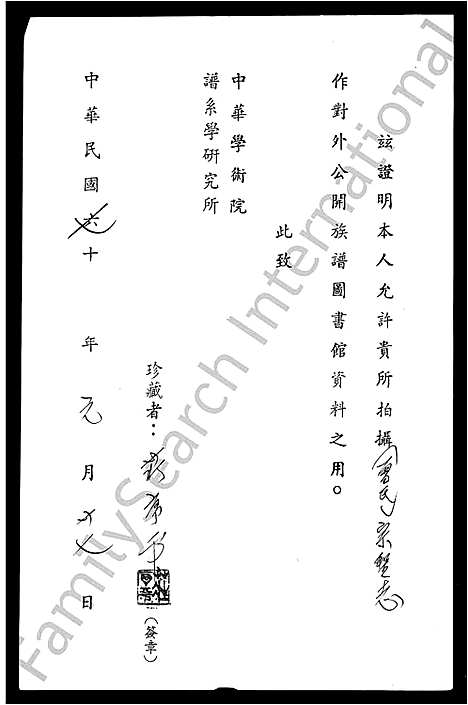 茲證明本人允許貴所拍攝曾氏宗聖志
作對外公開族譜圖書館資料之用。
此致
中華學術院
譜系學研究所
珍藏者：
(簽章)
中華民國七十年元月廿七日
FamilySearch International